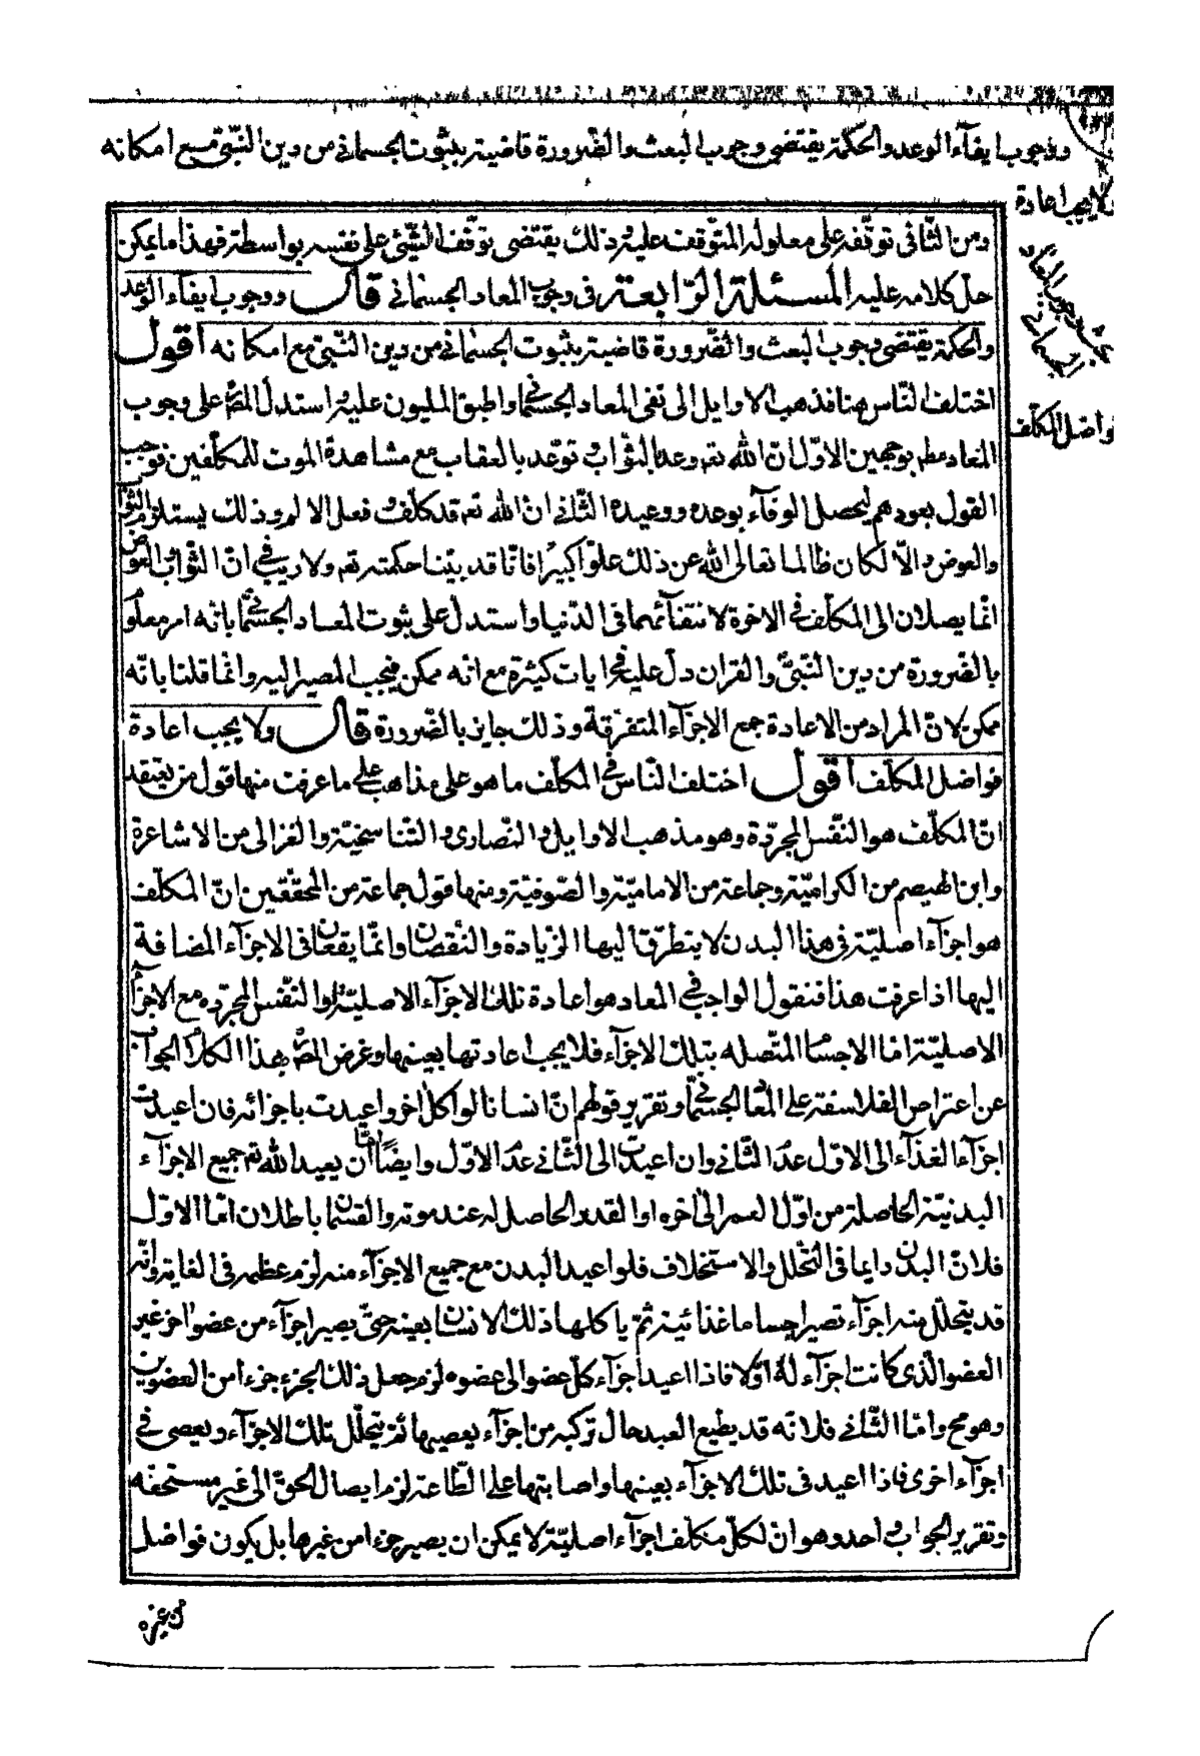 ووجوب ايفآء الوعد والحكمة يقتضى وجوب البعث والضّرورة قاضية بثبوت الجسمانى من دين النّبىّ مع امكانه
ولا يجب اعادة
فواضل المكلّف
ومن الثّانى توقّفه على معلوله المتوقف عليه وذلك يقتضى توقّف الشّىء على نفسه بواسطة فهذا ما يمكن
حل كلامه عليه المسئلة الرّابعة فى وجوب المعاد الجسمانى قال ووجوب ايفآء الوعد
والحكمة يقتضى وجوب البعث والضّرورة قاضية بثبوت الجسمانى من دين النّبىّ مع امكانه اقول
اختلف النّاس هنا فذهب الاوايل الى نفى المعاد الجسمانى واطبق المليون عليه واستدل المصّ على وجوب
المعاد مطم بوجهين الاوّل انّ الله تعه وعد بالثواب وتوعّد بالعقاب مع مشاهدة الموت للمكلّفين فوجب
القول بعودهم ليحصل الوفآء بوعده ووعيده الثّانى انّ الله تعه قد كلّف وفعل الالم وذلك يستلزم الثواب
والعوض والّا لكان ظالما تعالى الله عن ذلك علوّا كبيرا فانّا قد بيّنا حكمته تعه ولا ريب فى انّ الثّواب والعوض
انّما يصلان الى المكلّف فى الاخرة لانتفآئهما فى الدّنيا واستدل على ثبوت المعاد الجسمانى بانّه امر معلوم
بالضّرورة من دين النّبىّ والقران دلّ عليه فى ايات كثيرة مع انّه ممكن فيجب المصير اليه وانّما قلنا بانّه
ممكن لانّ المراد من الاعادة جمع الاجزآء المتفرقة وذلك جايز بالضّرورة قال ولا يجب اعادة
فواضل المكلّف اقول اختلف النّاس فى المكلّف ما هو على مذاهب على ما عرفت منها قول من يعتقد
انّ المكلّف هو النّفس المجرّدة وهو مذهب الاوايل والنّصارى والتّناسخيّة والغزالى من الاشاعرة
وابن الهيصم من الكراميّة وجماعة من الاماميّة والصّوفيّة ومنها قول جماعة من المحقّقين انّ المكلّف
هو اجزآء اصليّة فى هذا البدن لا يتطرّق اليها الزيادة والنّقصان وانّما يقعان فى الاجزآء المضافة
اليها اذا عرفت هذا فنقول الواجب فى المعاد هو اعادة تلك الاجزآء الاصليّة او النّفس المجرّده مع الاجزآء
الاصليّة امّا الاجسام المتّصله بتلك الاجزآء فلا يجب اعادتها بعينها وغرض المصّ بهذا الكلام الجواب
عن اعتراض الفلاسفة على المعاد الجسمانى وتقرير قولهم انّ انسانا لو اكل اخر واعيدت باجزائه فان اعيدت
اجزآء الغذآء الى الاوّل عدم الثّانى وان اعيدت الى الثّانى عدم الاوّل وايضًا امّا ان يعيد الله تعه جميع الاجزآء
البدنيّة الحاصلة من اوّل العمر الى اخره او القدر الحاصل له عند موته والقسمان باطلان امّا الاوّل
فلانّ البدن دايما فى التّحلل والاستخلاف فلو اعيد البدن مع جميع الاجزآء منه لزم عظمه فى الغاية وانّه
قد يتحلّل منه اجزآء تصير اجساما غذائية ثم ياكلها ذلك الانسان بعينه حتّى يصير اجزآء من عضو اخر غير
العضو الّذى كانت اجزآء له اوّلا فاذا اعيد اجزآء كلّ عضو الى عضوه لزم جعل ذلك الجزء جزءا من العضوين
وهو مح وامّا الثّانى فلانّه قد يطيع العبد حال تركبه من اجزآء بعينها ثم يتحلّل تلك الاجزآء ويعصى فى
اجزآء اخرى فاذا اعيد فى تلك الاجزآء بعينها واصابتها على الطّاعة لزم ايصال الحقّ الى غير مستحقه
وتقرير الجواب واحد وهو ان لكلّ مكلّف اجزآء اصليّة لا يمكن ان يصير جزءا من غيرها بل يكون فواضل
من غيره